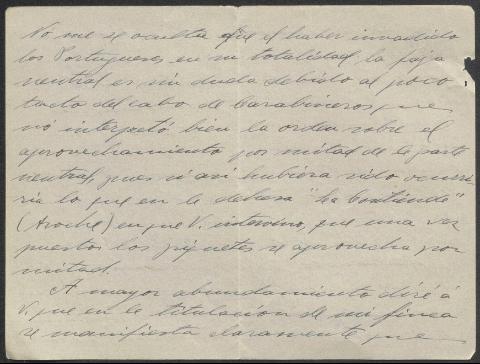 No me se oculta que el haber invadido
los Portugueses en su totalidad la faja
neutral es sin duda debido al poco
tacto del cabo de Carabineros que
no interpretó bien la orden sobre el
aprovechamiento por mitad de la parte
neutral, pues si asi hubiera sido ocurri-
ria lo que en la dehesa "La Contienda"
(Aroche) en que V. intervino, que una vez
puestos los piquetes se aprovecha por
mitad.
A mayor abundamiento diré á
V. que en la titulacion de mi finca
se manifiesta claramente que